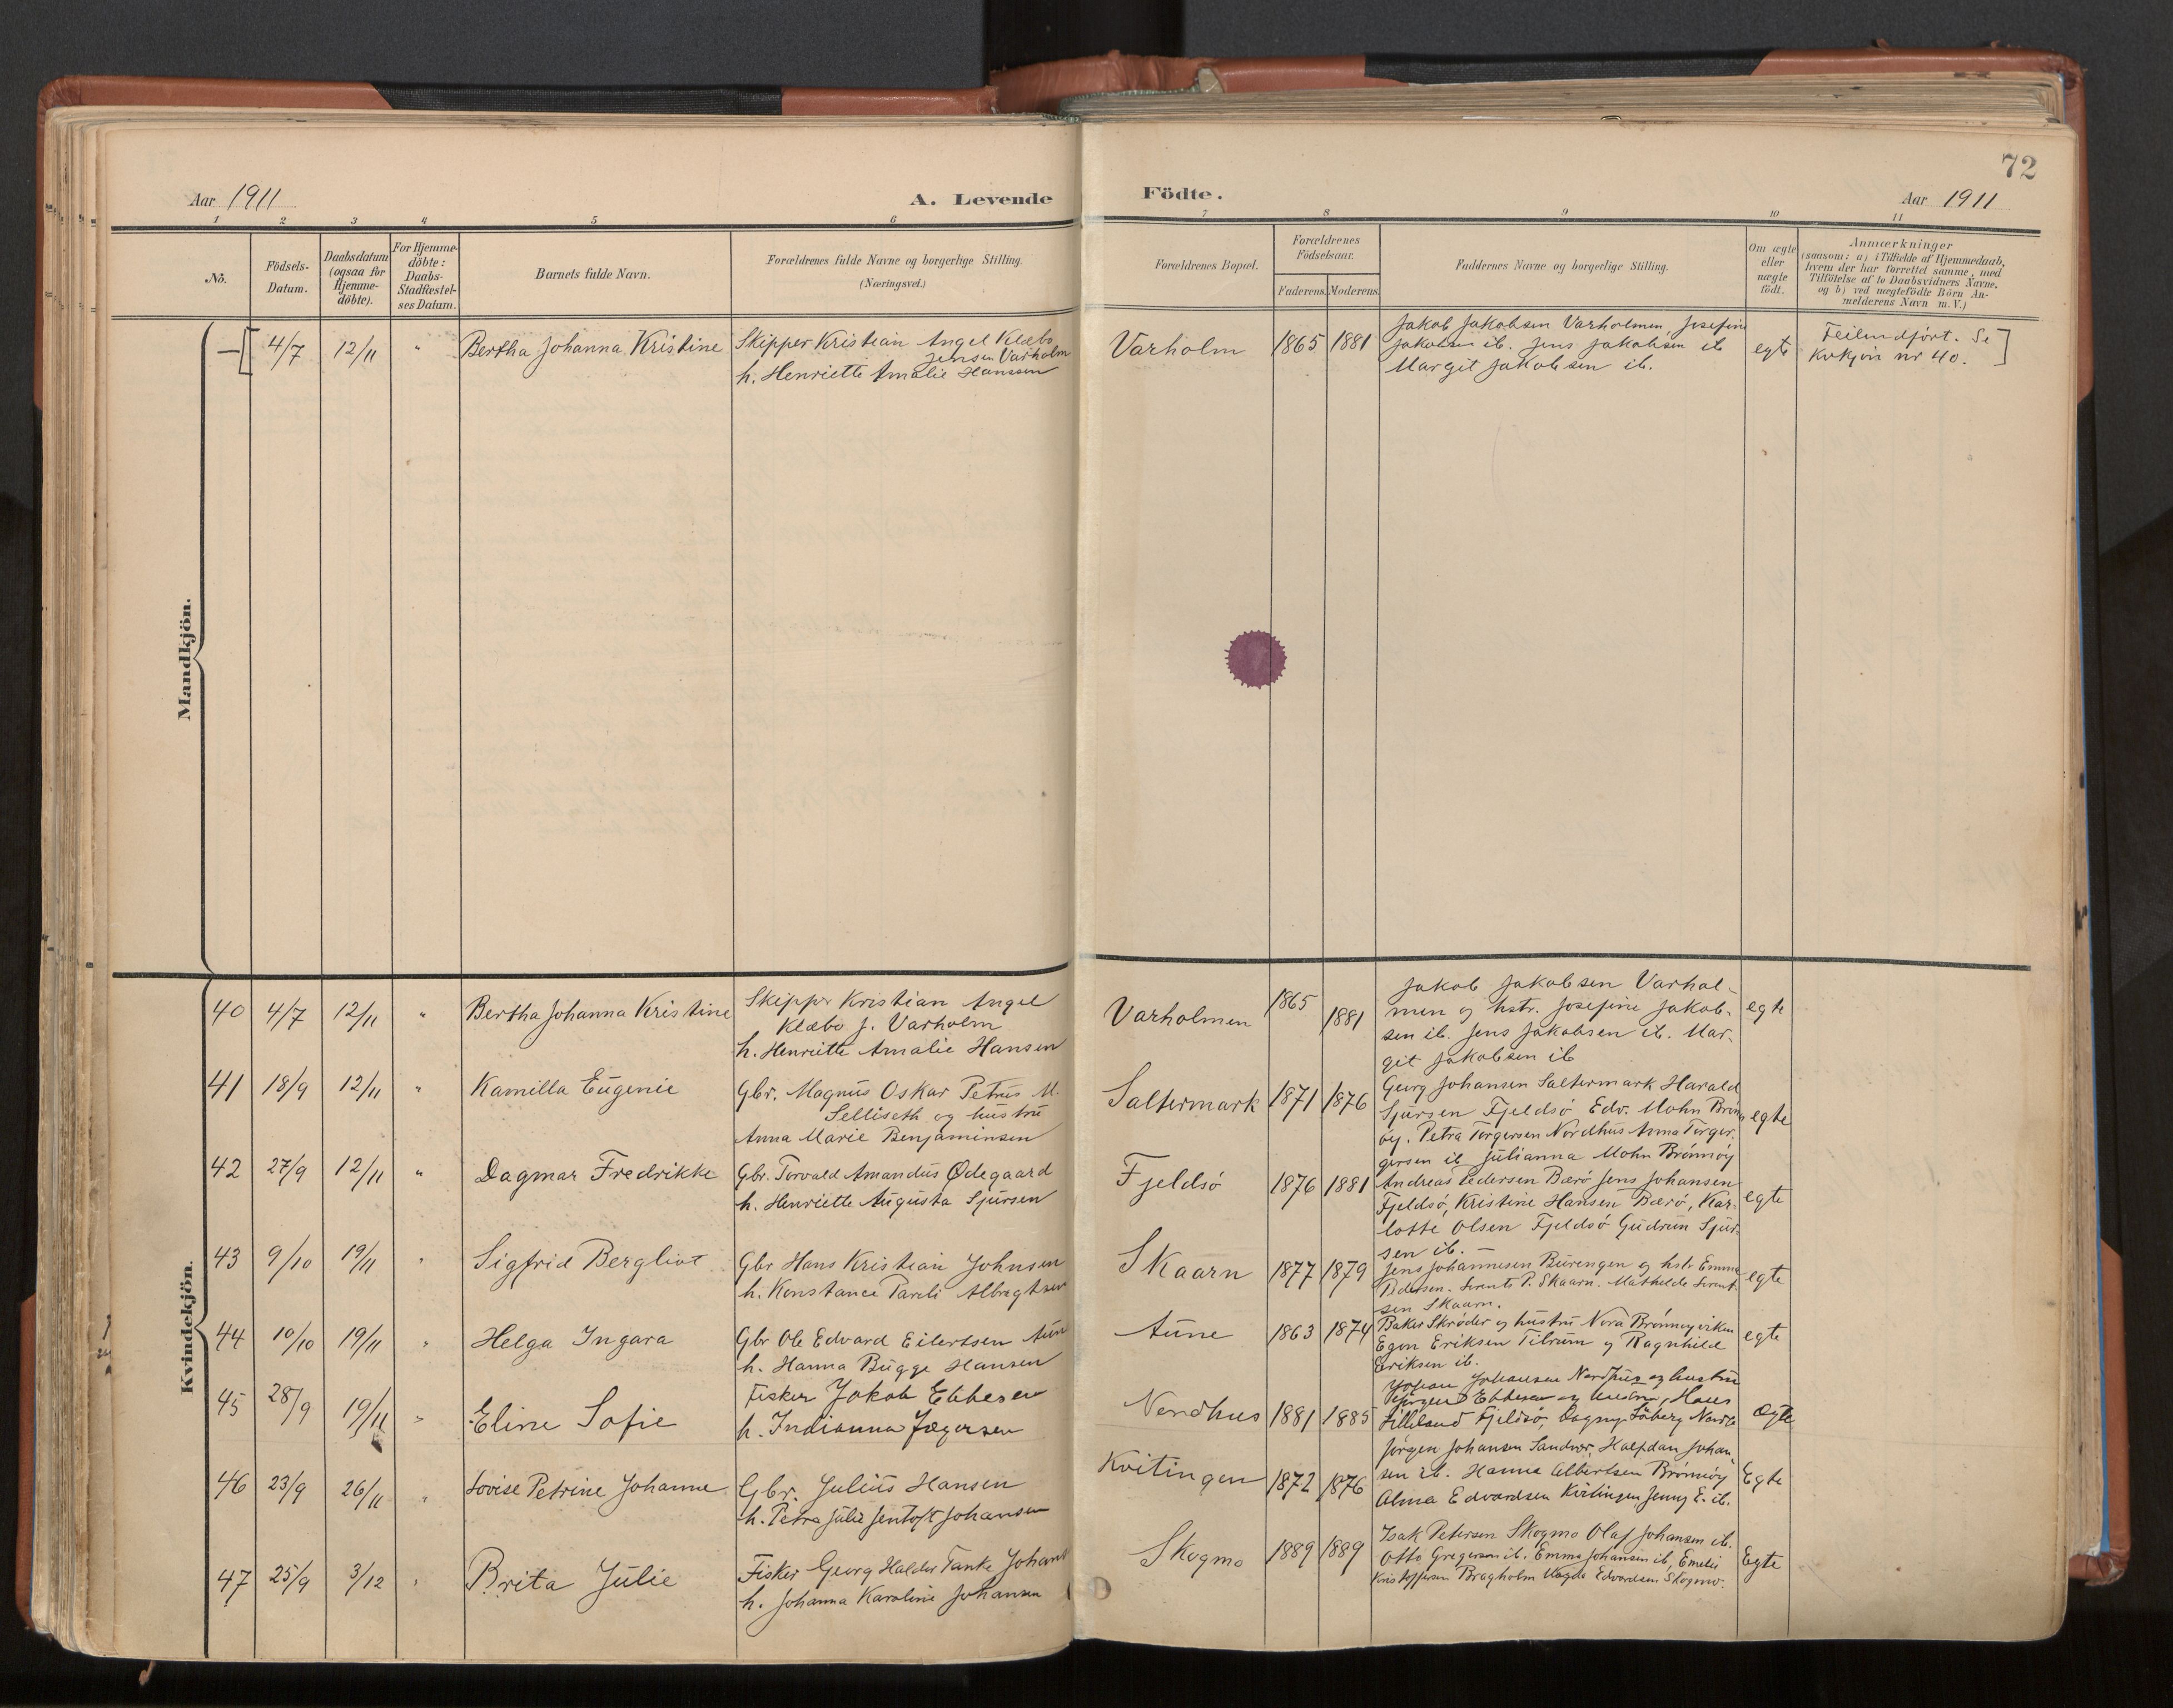 72
Aar 1911
A. Levende
Födte.
Aar 1911
1 2 3 4 5 6 7 8 9 10 11
No.
Födsels-
Datum.
Daabsdatum
(ogsaa for
Hjemme-
döbte).
For Hjemme-
döbte:
Daabs-
Stadfæstel-
ses Datum.
Barnets fulde Navn.
Forældrenes fulde Navne og borgerlige Stilling.
(Næringsvei.)
Forældrenes Bopæl.
Forældrenes
Födselsaar.
Faderens. Moderens.
Faddernes Navne og borgerlige Stilling.
Om ægte
eller
uægte
födt.
Anmærkninger
(saasom: a) i Tilfælde af Hjemmedaab,
hvem der har forrettet samme, med
Tilföielse af to Daabsvidners Navne,
og b) ved uægtefödte Börn An-
melderens Navn m. V.)
Mandkjön.
— [ 4/7 12/11 " Bertha Johanna Kristine
Skipper Kristian Angel Klæbo
Jensen Varholm
h. Henriette Amalie Hanssen
Varholm 1865 1881
Jakob Jakobsen Varholmen, Josefine
Jakobsen ib. Jens Jakobsen ib
Margit Jakobsen ib.
egte
Feilindført. Se
Kvkjøn nr 40. ]
Kvindekjön.
40 4/7 12/11 " Bertha Johanna Kristine
Skipper Kristian Angel
Klæbo J. Varholm
h. Henriette Amalie Hansen
Varholmen 1865 1881
Jakob Jakobsen Varhol-
men og hstr. Josefine Jakob-
sen ib. Jens Jakobsen ib. Mar-
git Jakobsen ib
egte
41 18/9 12/11 " Kamilla Eugenie
Gbr. Magnus Oskar Petrus M.
Selliseth og hustru
Anna Marie Benjaminsen
Saltermark 1871 1876
Georg Johansen Saltermark Harald
Sjursen Fjeldsö Edv. Mohn Brönn
öy. Petra Torgersen Nordhus Anna Torger.
gersen ib Julianna Mohn Brönnöy
egte
42 27/9 12/11 " Dagmar Fredrikke
Gbr. Torvald Amandus Ødegaard
h. Henriette Augusta Sjursen
Fjeldsö 1876 1881
Andreas Pedersen Bærö Jens Johansen
Fjeldsö, Kristine Hansen Bærö, Kar-
lotte Olsen Fjeldsö Gudrun Sjur-
sen ib.
egte
43 9/10 19/11 " Sigfrid Bergliot
Gbr Hans Kristian Johnsen
h. Konstance Pareli Albregtsen
Skaarn 1877 1879
Jens Johannesen Burengen og hstr Emma
Pedersen. P. Skaarn. Mathilde
sen Skaarn.
egte
44 10/10 19/11 " Helga Ingara
Gbr Ole Edvard Eilertsen Aune
h. Hanna Bugge Hansen
Aune 1863 1874
Baker Skrøder og hustru Nora Brönnøyviken
Egon Eriksen Tilrum og Ragnhild
Eriksen ib.
egte
45 28/9 19/11 " Eline Sofie
Fisker Jakob Ebbesen
h. Indianna Jægersen
Nordhus 1881 1885
Johan Johansen Nordhus og hustru
Jörgen Ebbesen og hustru, Hans
Lilleland Fjeldsö, Dagny Nordh
ægte
46 23/9 26/11 " Lovise Petrine Johanne
Gbr. Julius Hansen
h. Petra Julie Jentoft Johansen
Kvitingen 1872 1876
Jörgen Johansen Sandvær, Halfdan Johan-
sen ib. Hanna Albertsen Brönnöy
Alma Edvardsen Kvitingen Jenny E. ib.
Egte
47 25/9 3/12 " Brita Julie
Fisker Georg Haldor Tanke Johans
h. Johanna Karoline Johansen
Skogmo 1889 1889
Isak Petersen Skogmo Olaf Johansen ib.
Otto Gregersen ib. Emma Johansen ib, Emelie
Kristoffersen Bragholm Magda Edvardsen Skogmo.
Egte